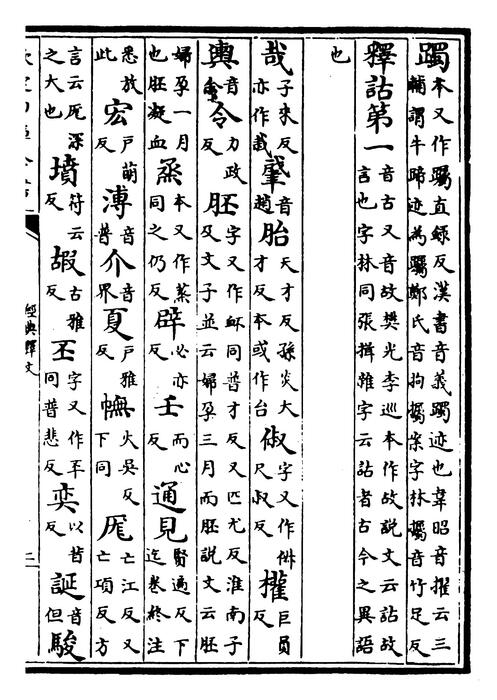 躅本又作躅直錄反漢書音義躅迹也韋昭音擢云三輔謂牛蹄迹為躅鄭氏音拘攔案字林躅音竹足反
釋詁第一音古又音故樊光李巡本作故說文云詁故言也字林同張揖雜字云詁者古今之異語
也
哉子來反亦作栽肇音趙胎天才反孫炎大才反本或作台俶字又作俶尺叔反權巨員反
輿音余令力政反胚字又作衃同普才反又匹尤反淮南子及文子並云婦孕三月而胚說文云胚
婦孕一月也胚凝血蒸本又作烝同之仍反辟必亦反壬而心反通見賢遍反下迄卷終注
悉放此宏戶萌反溥音普介音界夏戶雅反幠火吳反下同厖亡江反又亡項反方
言云厖深之大也墳符云反嘏古雅反丕字又作㔻同普悲反奕以昔反誕音但駿
經典釋文
二